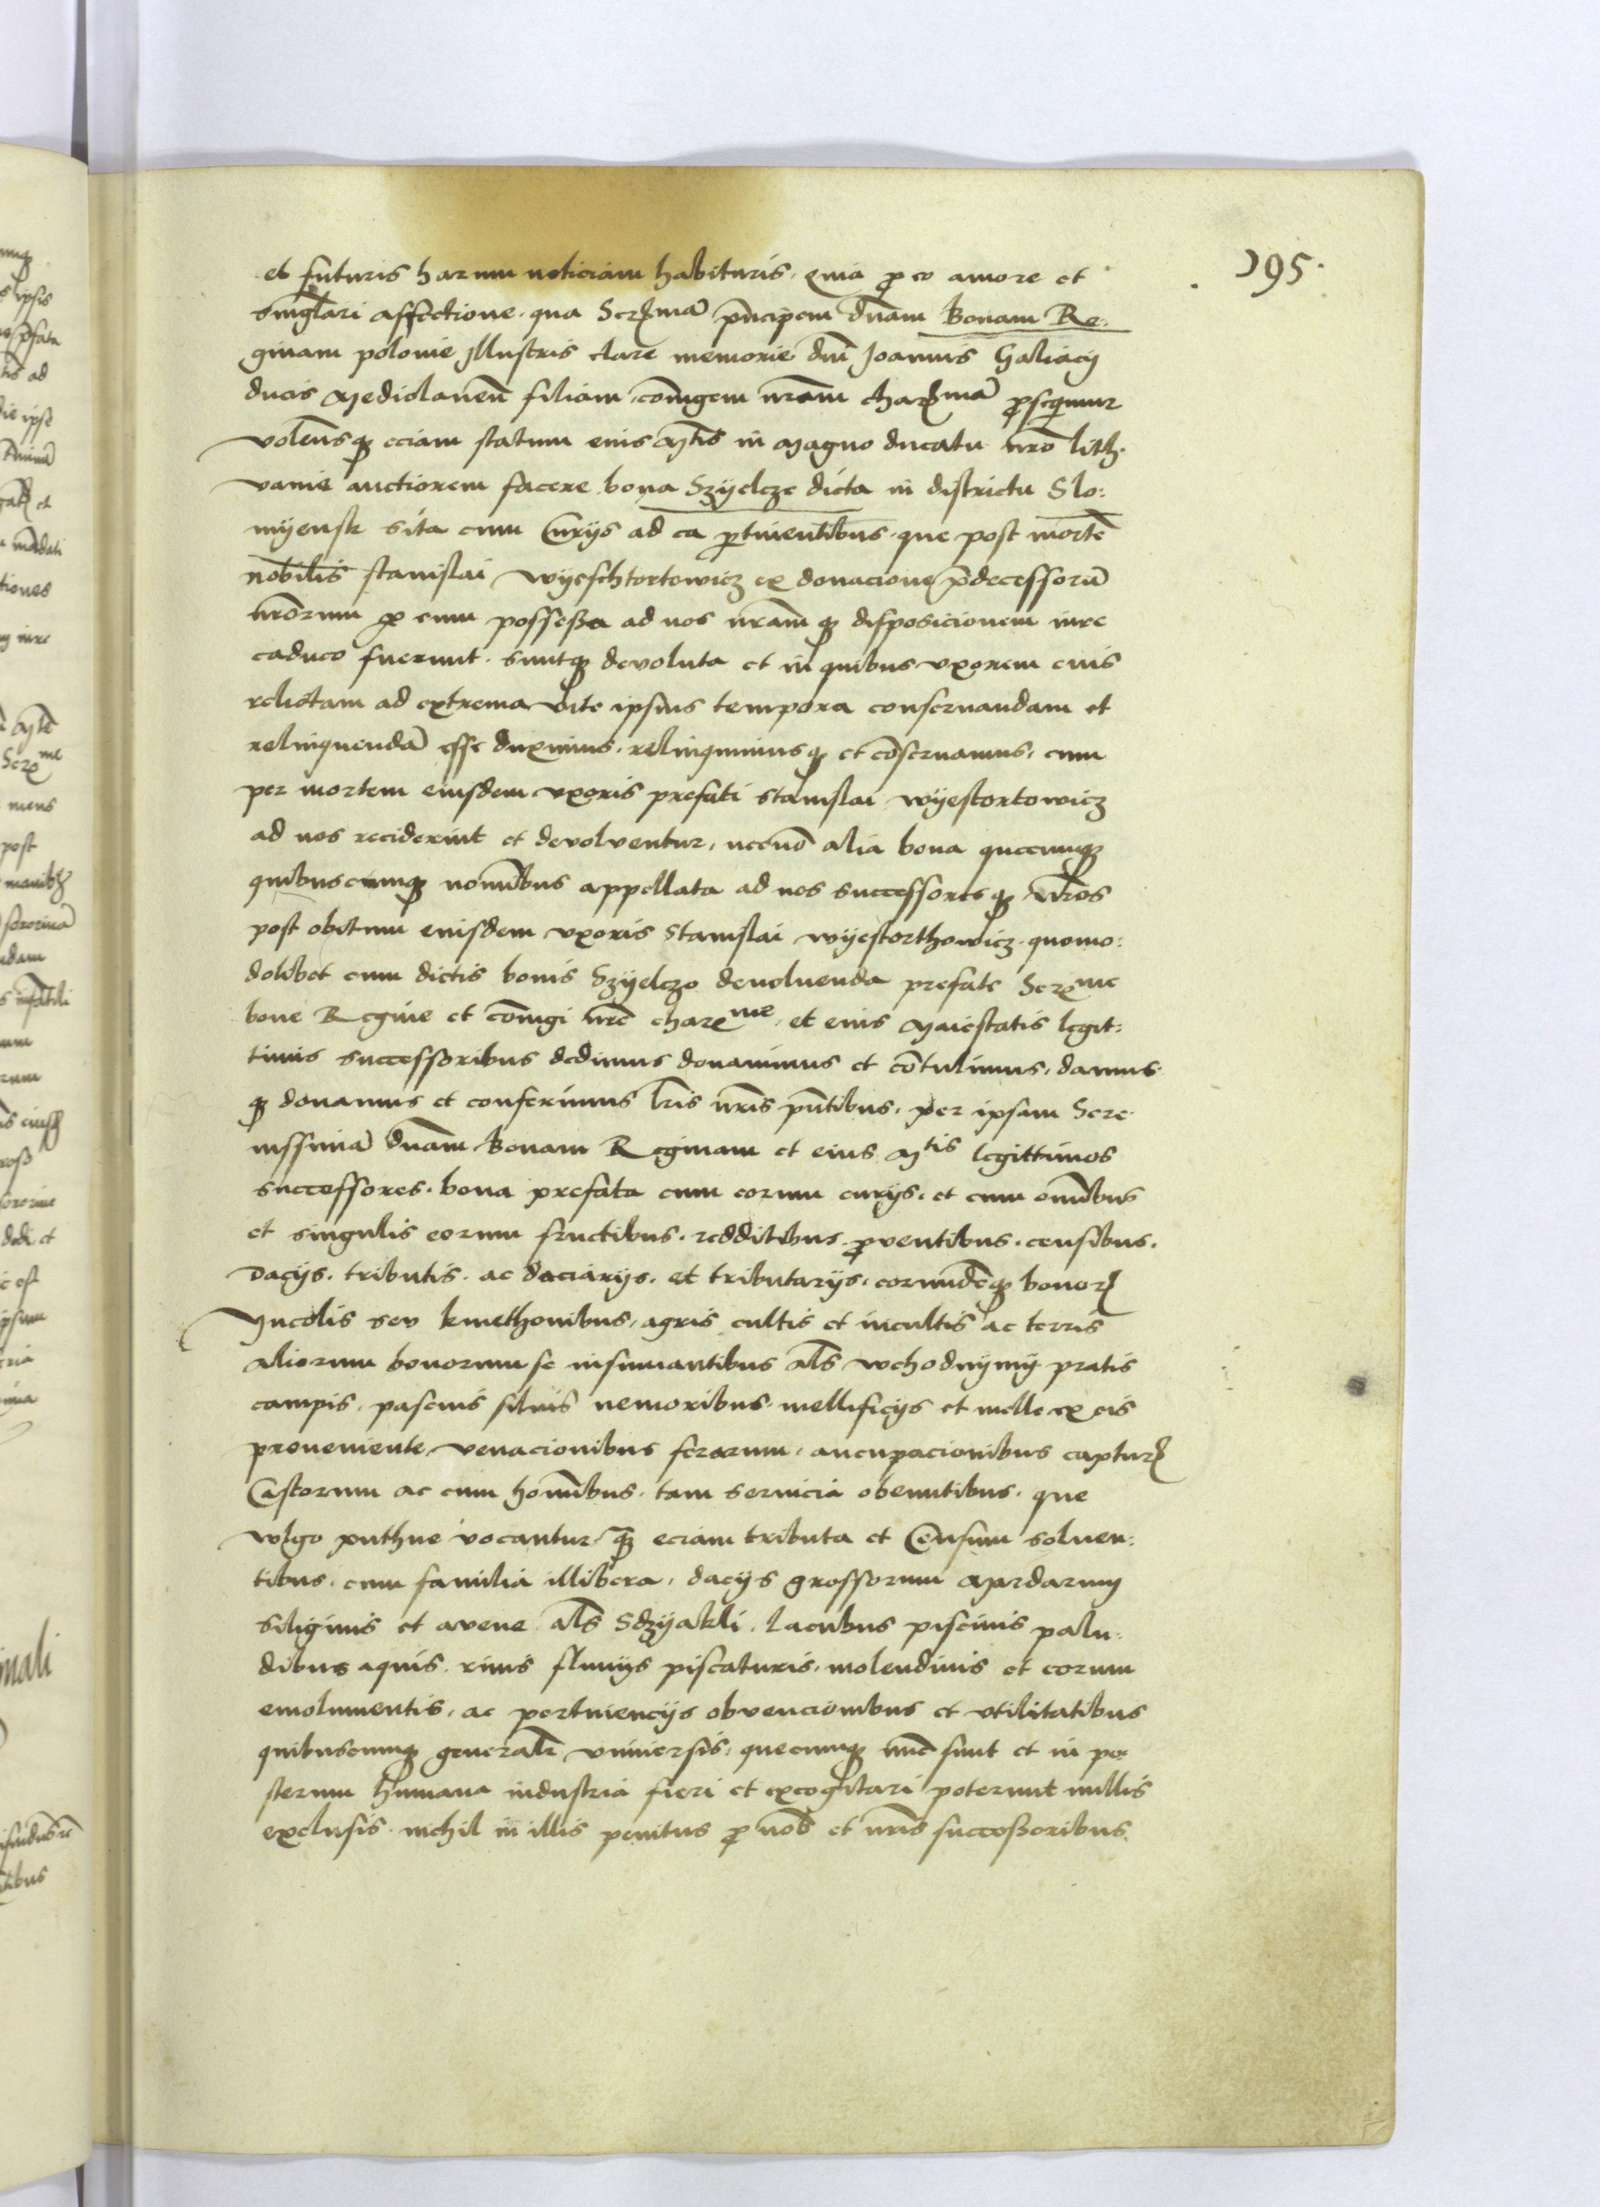 195.
et futuris harum noticiam habituris. quia pro eo amore et
singlari affectione. qua Serma principem dnam Bonam Re:
ginam polonie Illustris clare memorie dni Joannis Galiacij
ducis Mediolanen filiam, coniugem nram charma prosequimur
volensque eciam statum eius Mtis in Magno ducatu nro lith
vanie auctiorem facere bona Szyelcze dicta in districtu Slo:
nijensk sita cum Curijs ad ea pertinentibus. que post morte
nobilis stanislai wyeschtortowicz ex donacione predecessoru
nrorum per eum possessa ad nos nramque disposicionem iure
caduco fuerunt. suntque devoluta et in quibus uxorem eius
relictam ad extrema vite ipsius tempora conservandam et
relinquenda esse duximus. relinquimusque et conservamus, cum
per mortem eiusdem uxoris prefati stanislai wyestortowicz
ad nos reciderint et devolventur, necno alia bona quecunque
quibuscunque nominibus appellata ad nos successoresque nros
post obitum eiusdem uxoris Stanislai wyestorthowicz. quomo:
dolibet cum dictis bonis Szyelczo devoluenda prefate Serme
bone Regine et coniugi nre charme. et eius Maiestatis legit:
timis successoribus dedimus donavimus et contulimus, damus
que donamus et conferimus lris nris pntibus. per ipsam Sere
nissima dnam Bonam Reginam et eius Mtis legittimos
successores. bona prefata cum eorum curijs. et cum omnibus
et singulis eorum fructibus. redditibus. proventibus. censibus.
Dacijs. tributis. ac daciarijs. et tributarijs, eorundemque bonor
Incolis seu kmethonibus, agris cultis et incultis ac terris
aliorum bonorum se insinuantibus als wchodnymy pratis
campis. pascuis silvis nemoribus. mellificijs et melle ex eis
proveniente, venacionibus ferarum, aucupacionibus captur
Castorum ac cum hominibus. tam servicia obeuntibus. que
vulgo puthne vocantur. quam eciam tributa et Censum soluen:
tibus. cum familia illibera, dacijs grossorum Mardarum
siliginis et avene als Sdzyakli. Lacubus piscinis palu:
dibus aquis. rivis fluvijs piscaturis. molendinis et eorum
emolumentis, ac pertinencijs obvencionibus et utilitatibus
quibuscunque generale universis, quecunque nunc sunt et in po
sterum humana industria fieri et excogitari poterunt nullis
exclusis. nichil in illis penitus pro nob et nris successoribus.